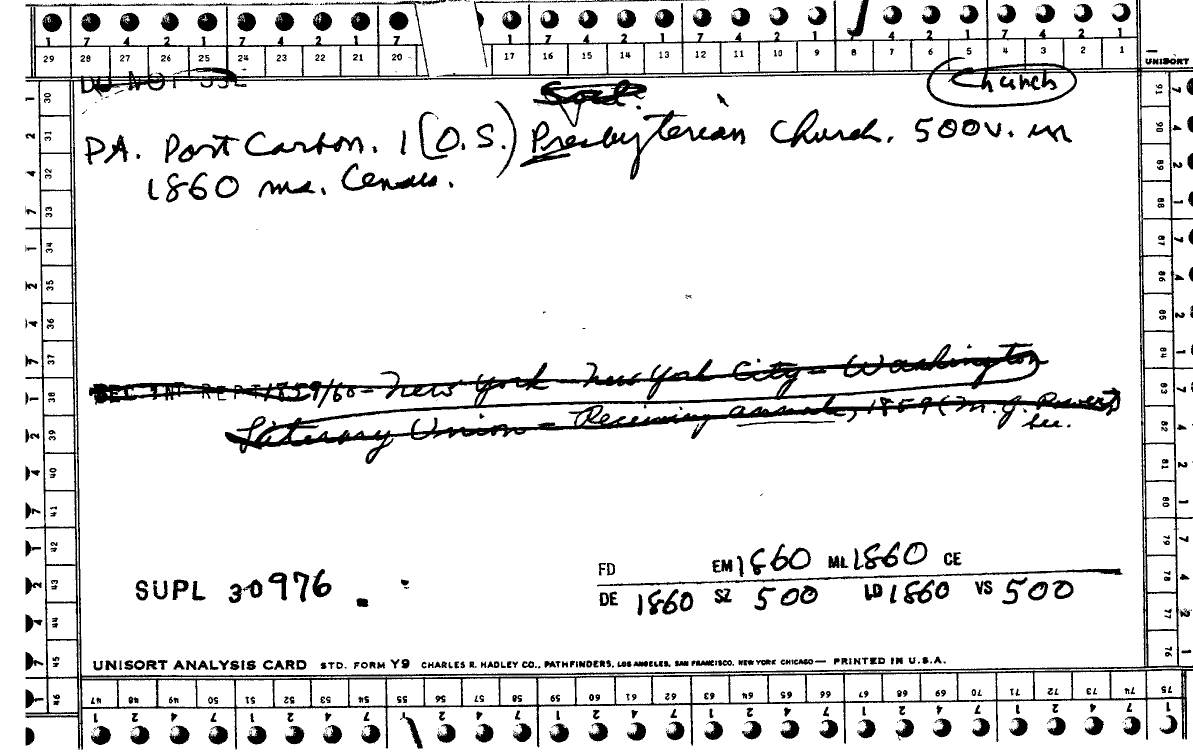 1 7 4 2 1 7 4 2 1 7 1 7 4 2 1 7 4 2 1 4 2 1 7 4 2 1
29 28 27 26 25 24 23 22 21 20 17 16 15 14 13 12 11 10 9 8 7 6 5 4 3 2 1
UNISORT
DO NOT USE
Church
PA. Port Carbon. 1 (O.S.) Presbyterian Church. 500v. in
1860 ms. Census.
DEC INT REPT 1859/60 - New York - New York City - Washington
Literary Union - Receiving annuals, 1859 (M.J.
FD EM 1860 ML 1860 CE
SUPL 30976
DE 1860 SZ 500 LD 1860 VS 500
UNISORT ANALYSIS CARD STD. FORM Y9 CHARLES R. HADLEY CO., PATHFINDERS, LOS ANGELES, SAN FRANCISCO, NEW YORK CHICAGO — PRINTED IN U.S.A.
30 31 32 33 34 35 36 37 38 39 40 41 42 43 44 45 46
47 48 49 50 51 52 53 54 55 56 57 58 59 60 61 62 63 64 65 66 67 68 69 70 71 72 73 74 75
91 90 89 88 87 86 85 84 83 82 81 80 79 78 77 76